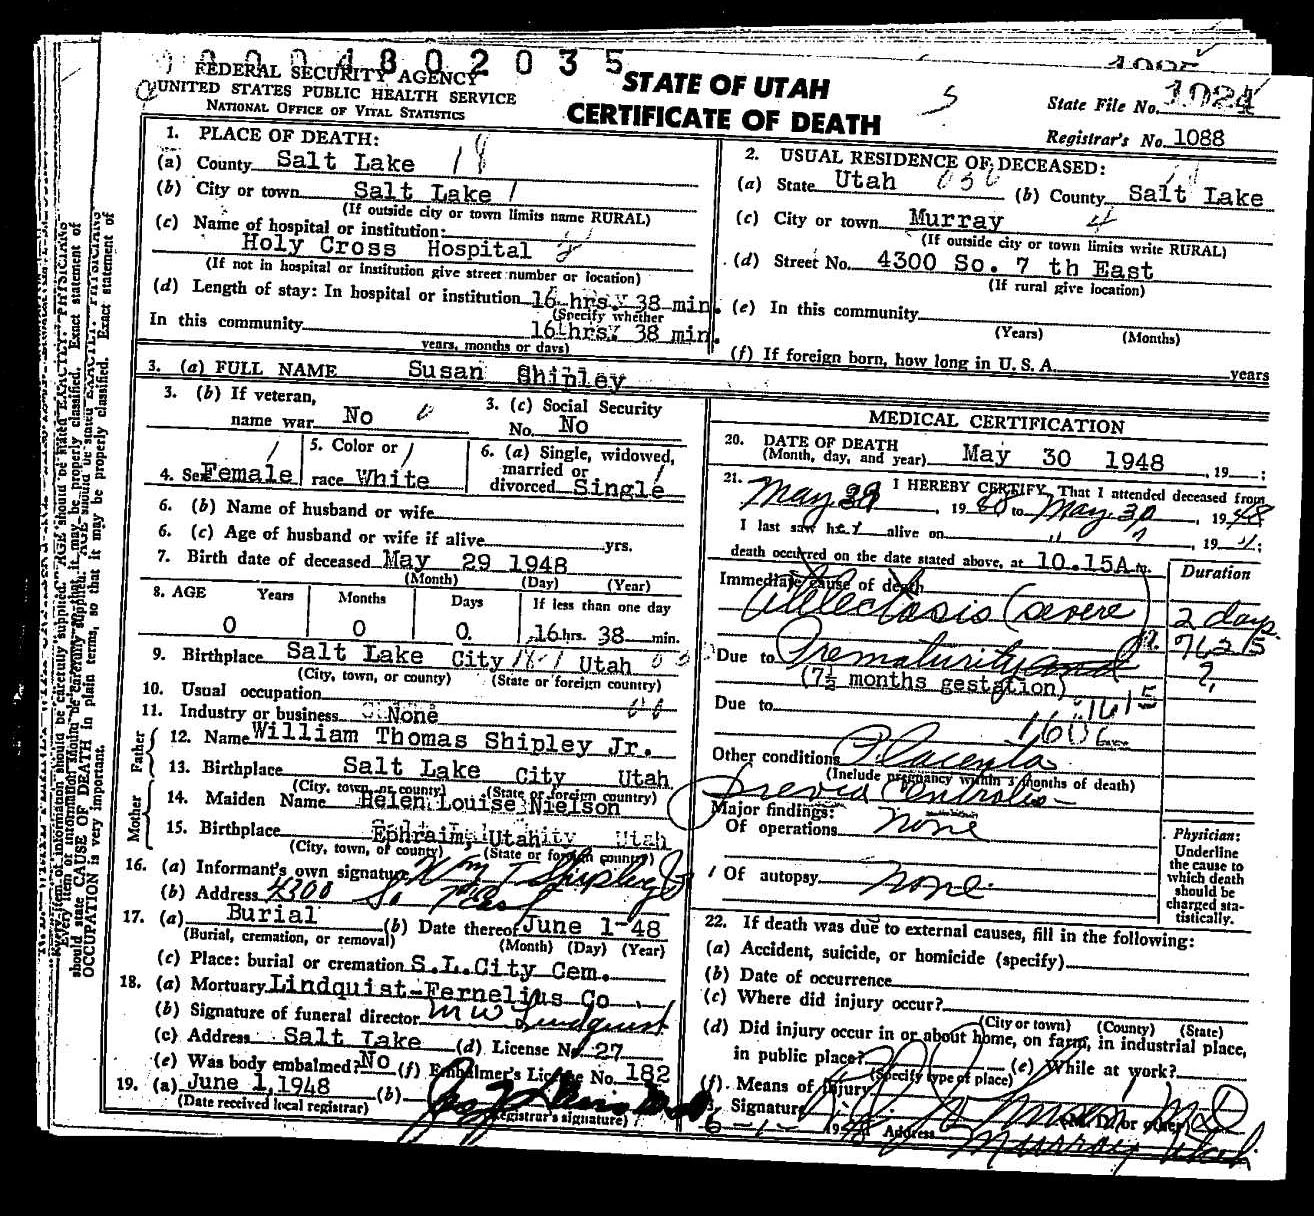 0 0 0 0 4 8 0 2 0 3 5
FEDERAL SECURITY AGENCY
UNITED STATES PUBLIC HEALTH SERVICE
NATIONAL OFFICE OF VITAL STATISTICS
STATE OF UTAH
CERTIFICATE OF DEATH
State File No. 1024
Registrar's No. 1088
1. PLACE OF DEATH:
(a) County Salt Lake 18
(b) City or town Salt Lake 1
(If outside city or town limits name RURAL)
(c) Name of hospital or institution:
Holy Cross Hospital
(If not in hospital or institution give street number or location)
(d) Length of stay: In hospital or institution 16 hrs. 38 min.
(Specify whether
In this community 16 hrs. 38 min.
years, months or days)
2. USUAL RESIDENCE OF DECEASED:
(a) State Utah (b) County Salt Lake
(c) City or town Murray 4
(If outside city or town limits write RURAL)
(d) Street No. 4300 So. 7 th East
(If rural give location)
(e) In this community
(Years) (Months)
(f) If foreign born, how long in U. S. A. years
3. (a) FULL NAME Susan Shipley
3. (b) If veteran, name war No 0
3. (c) Social Security No. No
4. Sex Female
5. Color or race White
6. (a) Single, widowed, married or divorced Single
6. (b) Name of husband or wife
6. (c) Age of husband or wife if alive yrs.
7. Birth date of deceased May 29 1948
(Month) (Day) (Year)
8. AGE Years Months Days If less than one day
0 0 0. 16 hrs. 38 min.
9. Birthplace Salt Lake City 18-1 Utah
(City, town, or county) (State or foreign country)
10. Usual occupation
11. Industry or business None
Father
12. Name William Thomas Shipley Jr.
13. Birthplace Salt Lake City Utah
(City, town or county) (State or foreign country)
Mother
14. Maiden Name Helen Louise Nielson
15. Birthplace Ephraim, Utah
(City, town, of county) (State or foreign country)
16. (a) Informant's own signature Wm T Shipley Jr
(b) Address 4300 So 7th East
17. (a) Burial (b) Date thereof June 1-48
(Burial, cremation, or removal) (Month) (Day) (Year)
(c) Place: burial or cremation S.L.City Cem.
18. (a) Mortuary Lindquist-Fernelius Co
(b) Signature of funeral director M W Lindquist
(c) Address Salt Lake (d) License No. 27
(e) Was body embalmed? No (f) Embalmer's License No. 182
19. (a) June 1,1948 (b)
(Date received local registrar) (Registrar's signature)
MEDICAL CERTIFICATION
20. DATE OF DEATH
(Month, day, and year) May 30 1948, 19 ;
21. I HEREBY CERTIFY, That I attended deceased from
May 29, 1948 to May 30, 1948
I last saw her alive on " ", 19 ";
death occurred on the date stated above, at 10.15A m.
Duration
Immediate cause of death
Atelectasis (severe) 2 days
7625
Due to Prematurity and ?
(7½ months gestation)
Due to
Other conditions Placenta
(Include pregnancy within 3 months of death)
Previa Centralis
Major findings:
Of operations none
Of autopsy none.
Physician:
Underline
the cause to
which death
should be
charged sta-
tistically.
22. If death was due to external causes, fill in the following:
(a) Accident, suicide, or homicide (specify)
(b) Date of occurrence
(c) Where did injury occur?
(City or town) (County) (State)
(d) Did injury occur in or about home, on farm, in industrial place,
in public place? (e) While at work?
(Specify type of place)
(f) Means of Injury
Signature (M. D. or other)
6-1-1948 Address Murray Utah